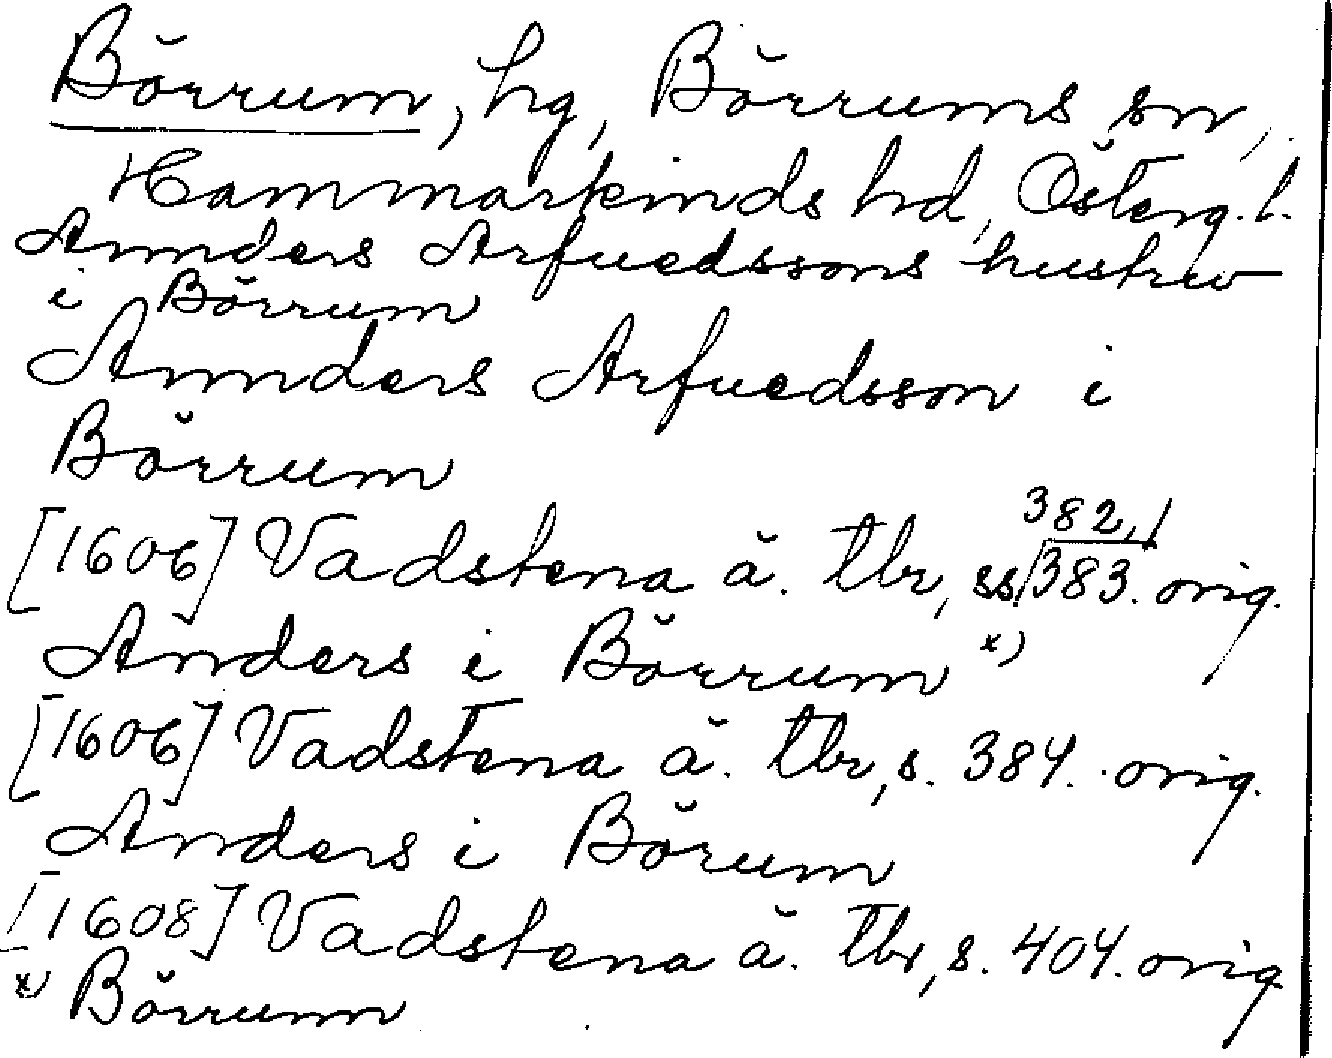 Börrum, hg, Börrums sn,
Hammarkinds hd, Österg. l.
Annders Arfuedssons hustrv
i Börrum
Annders Arfuedsson i
Börrum
382, /
[1606] Vadstena ä. tbr, ss/383. orig.
Anders i Börrum x)
[1606] Vadstena ä. tbr, s. 384. orig.
Anders i Börum
[1608] Vadstena ä. tbr, s. 404. orig
x) Börrunn